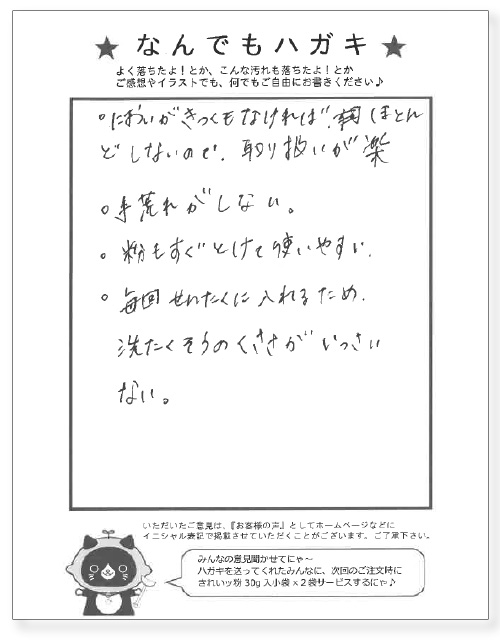 ★ なんでもハガキ ★
よく落ちたよ！とか、こんな汚れも落ちたよ！とか
ご感想やイラストでも、何でもご自由にお書きください♪
○においがきつくもなければ、ほとん
どしないので、取り扱いが楽
○手荒れがしない。
○粉もすぐとけて使いやすい。
○毎回せんたくに入れるため、
洗たくそうのくささがいっさい
ない。
いただいたご意見は、『お客様の声』としてホームページなどに
イニシャル表記で掲載させていただくことがございます。ご了承下さい。
みんなの意見聞かせてにゃ～
ハガキを送ってくれたみんなに、次回のご注文時に
きれいッ粉 30g 入小袋×2袋サービスするにゃ♪